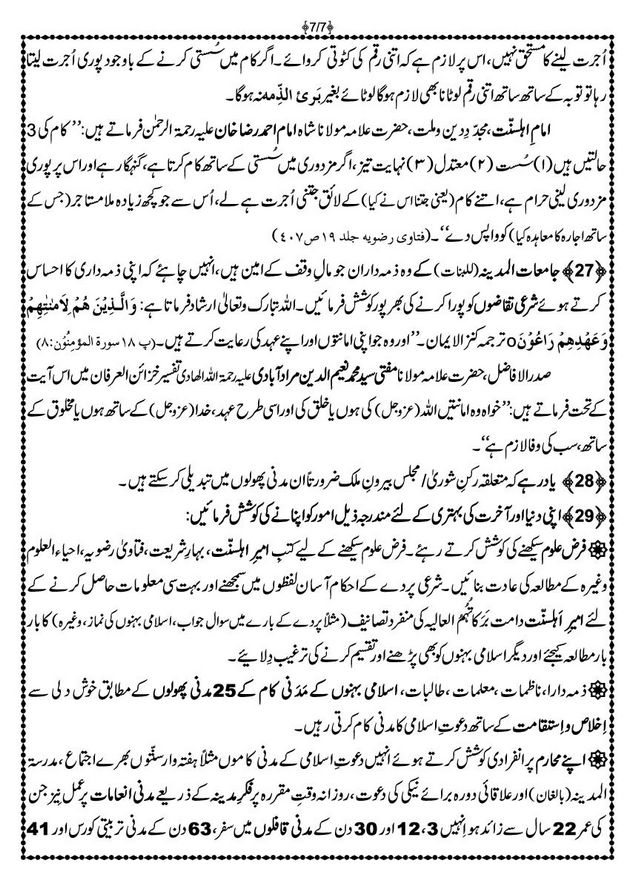 ﴿7/7﴾
اُجرت لینے کا مستحق نہیں، اس پر لازم ہے کہ اتنی رقم کی کٹوتی کروائے۔ اگر کام میں سُستی کرنے کے باوجود پوری اُجرت لیتا
رہا تو توبہ کے ساتھ ساتھ اتنی رقم لوٹانا بھی لازم ہوگا لوٹائے بغیر بَریُٔ الذِّمہ نہ ہوگا۔
امامِ اہلسنّت، مجدّدِ دِین و ملت، حضرت علامہ مولانا شاہ امام احمد رضا خان علیہ رحمۃ الرحمٰن فرماتے ہیں: ’’کام کی 3
حالتیں ہیں (۱) سُست (۲) معتدل (۳) نہایت تیز، اگر مزدوری میں سُستی کے ساتھ کام کرتا ہے، گنہگار ہے اور اس پر پوری
مزدوری لینی حرام ہے، اتنے کام (یعنی جتنا اس نے کیا) کے لائق جتنی اُجرت ہے لے، اُس سے جو کچھ زیادہ ملا مستاجر (جس کے
ساتھ اجارہ کا معاہدہ کیا) کو واپس دے‘‘۔ (فتاوی رضویہ جلد ۱۹ ص ۴۰۷)
﴿27﴾ جامعات المدینہ (للبنات) کے وہ ذمہ داران جو مالِ وقف کے امین ہیں، انہیں چاہئے کہ اپنی ذمہ داری کا احساس
کرتے ہوئے شرعی تقاضوں کو پورا کرنے کی بھرپور کوشش فرمائیں۔ اللہ تبارک وتعالیٰ ارشاد فرماتا ہے: وَالَّذِیْنَ ھُمْ لِاَمٰنٰتِھِمْ
وَعَھْدِھِمْ رَاعُوْنَ o ترجمہ کنزالایمان۔ ’’اور وہ جو اپنی امانتوں اور اپنے عہد کی رعایت کرتے ہیں۔ (پ ۱۸ سورۃ المؤمِنُوْن: ۸)
صدر الافاضل، حضرت علامہ مولانا مفتی سید محمد نعیم الدین مراد آبادی علیہ رحمۃ اللہ الھادی تفسیر خزائن العرفان میں اس آیت
کے تحت فرماتے ہیں: ’’خواہ وہ امانتیں اللہ (عزوجل) کی ہوں یا خلق کی اور اسی طرح عہد، خدا (عزوجل) کے ساتھ ہوں یا مخلوق کے
ساتھ، سب کی وفا لازم ہے‘‘۔
﴿28﴾ یاد رہے کہ متعلقہ رکنِ شوریٰ/ مجلس بیرونِ ملک ضرورتاً ان مدنی پھولوں میں تبدیلی کر سکتے ہیں۔
﴿29﴾ اپنی دنیا اور آخرت کی بہتری کے لئے مندرجہ ذیل امور کو اپنانے کی کوشش فرمائیں:
فرض علوم سیکھنے کی کوشش کرتے رہئے۔ فرض علوم سیکھنے کے لیے کتبِ امیرِ اہلسنّت، بہارِ شریعت، فتاویٰ رضویہ، احیاء العلوم
وغیرہ کے مطالعہ کی عادت بنائیں۔ شرعی پردے کے احکام آسان لفظوں میں سمجھنے اور بہت سی معلومات حاصل کرنے کے
لئے امیرِ اَہلسنّت دامت بَرَکاتُہُم العالیہ کی منفرد تصانیف (مثلاً پردے کے بارے میں سوال جواب، اسلامی بہنوں کی نماز، وغیرہ) کا بار
بار مطالعہ کیجئے اور دیگر اسلامی بہنوں کو بھی پڑھنے اور تقسیم کرنے کی ترغیب دِلائیے۔
ذمہ دارا، ناظمات، معلمات، طالبات، اسلامی بہنوں کے مَدَنی کام کے 25 مدنی پھولوں کے مطابق خوش دلی سے
اِخلاص و اِستقامت کے ساتھ دعوتِ اسلامی کا مدنی کام کرتی رہیں۔
اپنے محارم پر انفرادی کوشش کرتے ہوئے انہیں دعوتِ اسلامی کے مدنی کاموں مثلاً ہفتہ وار سنّتوں بھرے اجتماع، مدرسۃ
المدینہ (بالغان) اور علاقائی دورہ برائے نیکی کی دعوت، روزانہ وقتِ مقررہ پر فکرِ مدینہ کے ذریعے مدنی انعامات پر عمل نیز جن
کی عمر 22 سال سے زائد ہو اِنہیں 3، 12 اور 30 دن کے مدنی قافلوں میں سفر، 63 دن کے مدنی تربیتی کورس اور 41